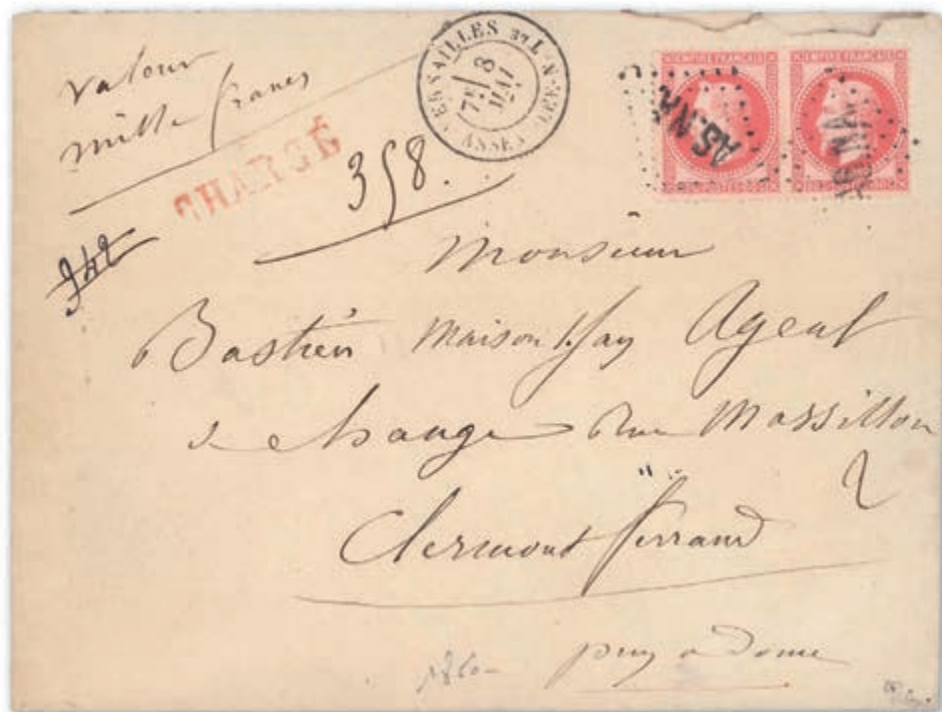 valeur
mille francs
CHARGÉ
358.
342
VERSAILLES
7E 8 MAI
ASSEMBLÉE N
EMPIRE FRANÇAIS
EMPIRE FRANÇAIS
AS.NA
AS.NA
Monsieur
Bastien Maison Agent
de change Rue Massillon
2
Clermont ferrand
puy de Dome